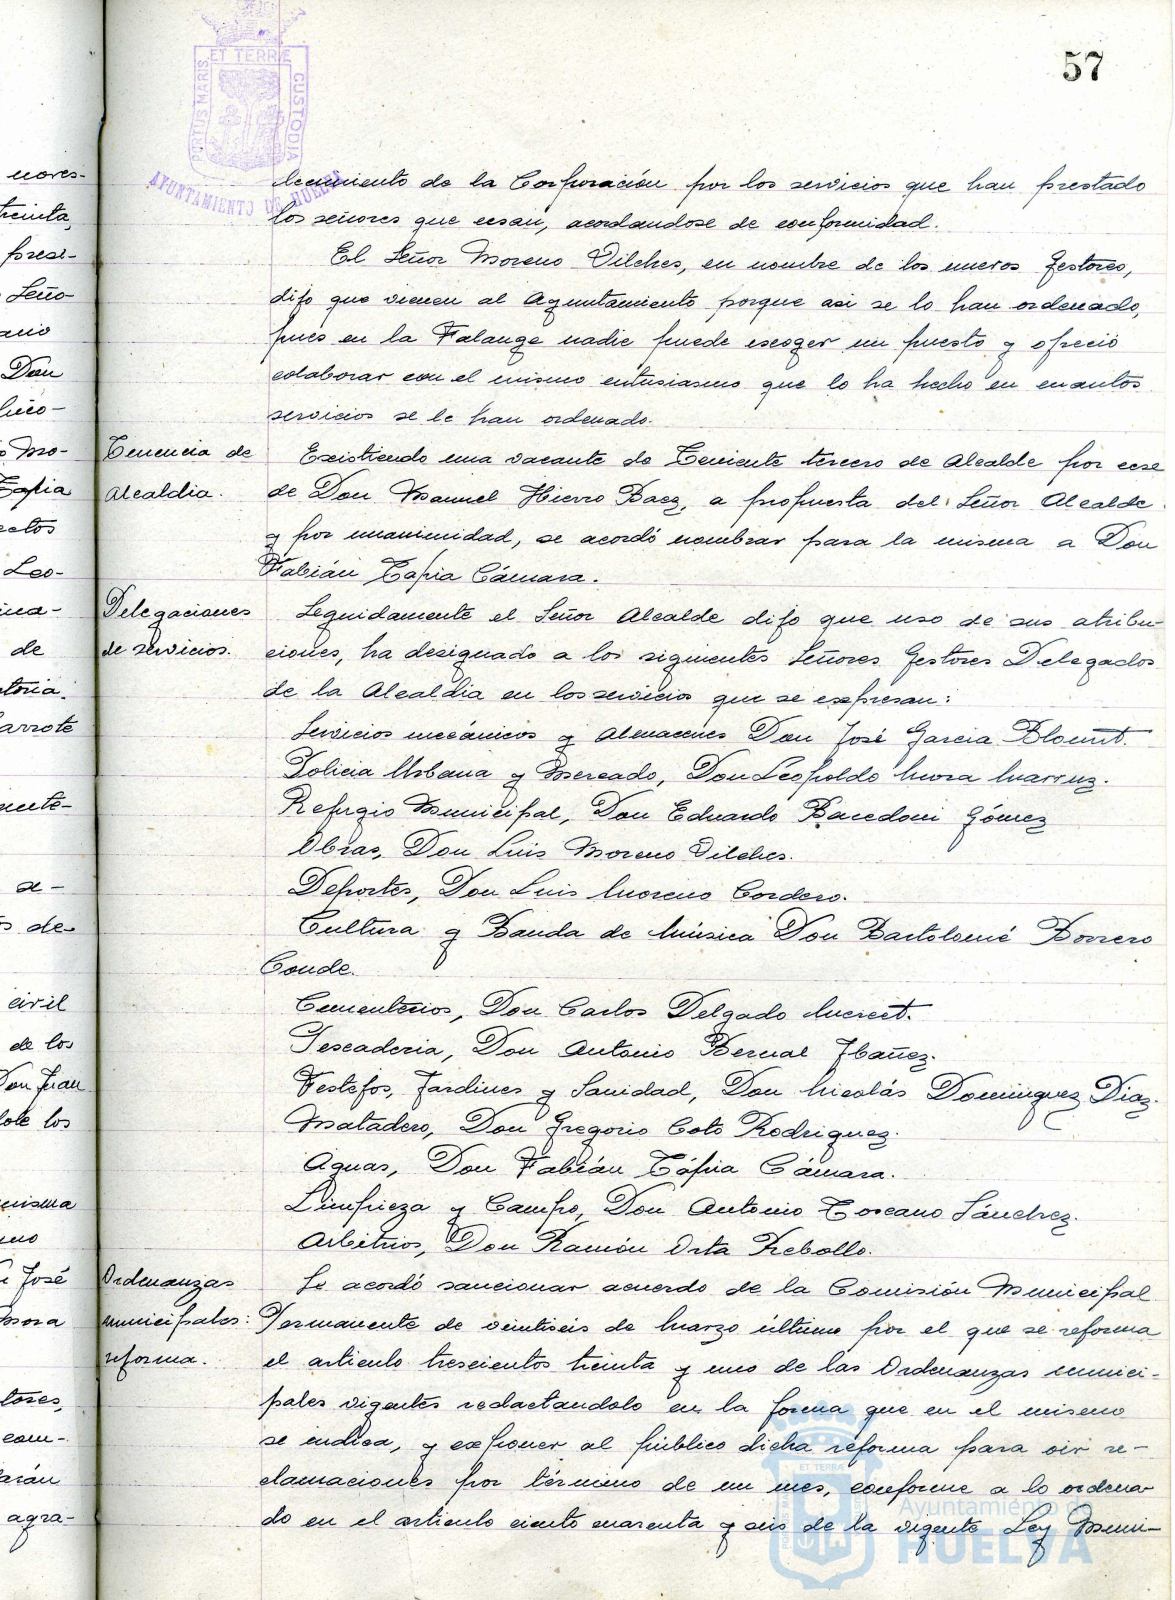 57
PORTUS MARIS ET TERRÆ CUSTODIA
AYUNTAMIENTO DE HUELVA
nores-
treinta,
presi-
Seño-
ario
Don
Mo-
Tapia
ectos
Leo-
de
atoria.
Garrote
a-
s de-
civil
de los
Don Juan
dole los
misma
José
Mora
tores,
com-
arán
agra-
decimiento de la Corporación por los servicios que han prestado
los señores que cesan, acordandose de conformidad.
El Señor Moreno Vilches, en nombre de los nuevos Gestores,
dijo que vienen al Ayuntamiento porque asi se lo han ordenado,
pues en la Falange nadie puede escoger un puesto y ofreció
colaborar con el mismo entusiasmo que lo ha hecho en cuantos
servicios se le han ordenado.
Tenencia de
Alcaldia.
Existiendo una vacante de Teniente tercero de Alcalde por cese
de Don Manuel Hierro Baez, a propuesta del Señor Alcalde
y por unanimidad, se acordó nombrar para la misma a Don
Fabián Tapia Cámara.
Delegaciones
de servicios.
Seguidamente el Señor Alcalde dijo que uso de sus atribu-
ciones, ha designado a los siguientes Señores Gestores Delegados
de la Alcaldia en los servicios que se expresan:
Servicios mecánicos y Almacenes Don José Garcia Blount.
Policia Urbana y Mercado, Don Leopoldo Mora Marruz.
Refugio Municipal, Don Eduardo Bacedoni Gómez
Obras, Don Luis Moreno Vilches.
Deportes, Don Luis Moreno Cordero.
Cultura y Banda de Música Don Bartolomé Borrero
Conde.
Cementerios, Don Carlos Delgado Merect.
Pescaderia, Don Antonio Bernal Ibañez.
Festejos, Jardines y Sanidad, Don Nicolás Dominguez Diaz.
Matadero, Don Gregorio Coto Rodriguez.
Aguas, Don Fabián Tápia Cámara.
Limpieza y Campo, Don Antonio Toscano Sánchez.
Arbitrios, Don Ramón Orta Rebollo.
Ordenanzas
municipales:
reforma.
Se acordó sancionar acuerdo de la Comisión Municipal
Permanente de veintiseis de Marzo último por el que se reforma
el articulo trescientos treinta y uno de las Ordenanzas munici-
pales vigentes redactandolo en la forma que en el mismo
se indica, y exponer al público dicha reforma para oir re-
clamaciones por término de un mes, conforme a lo ordena-
do en el articulo ciento cuarenta y seis de la vigente Ley Muni-
Ayuntamiento de
HUELVA